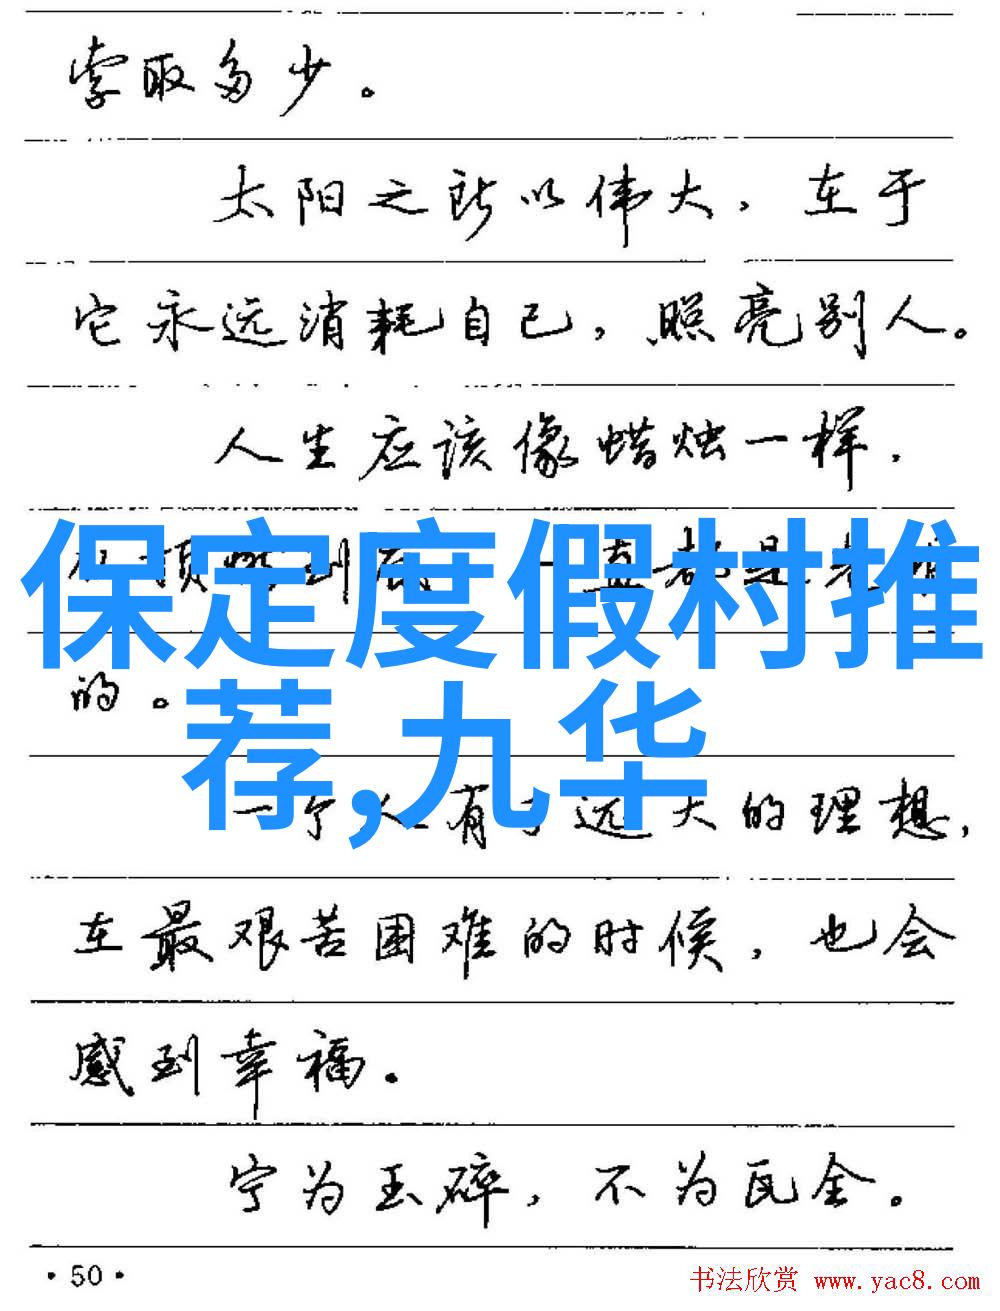 索取多少。
太阳之所以伟大，在于
它永远消耗自己，照亮别人。
人生应该像蜡烛一样，
从顶燃到底，一直都是光明
的。
保定度假村推
荐,九华
一个人有了远大的理想，
在最艰苦困难的时候，也会
感到幸福。
宁为玉碎，不为瓦全。
·50·
书法欣赏 www.yac8.com